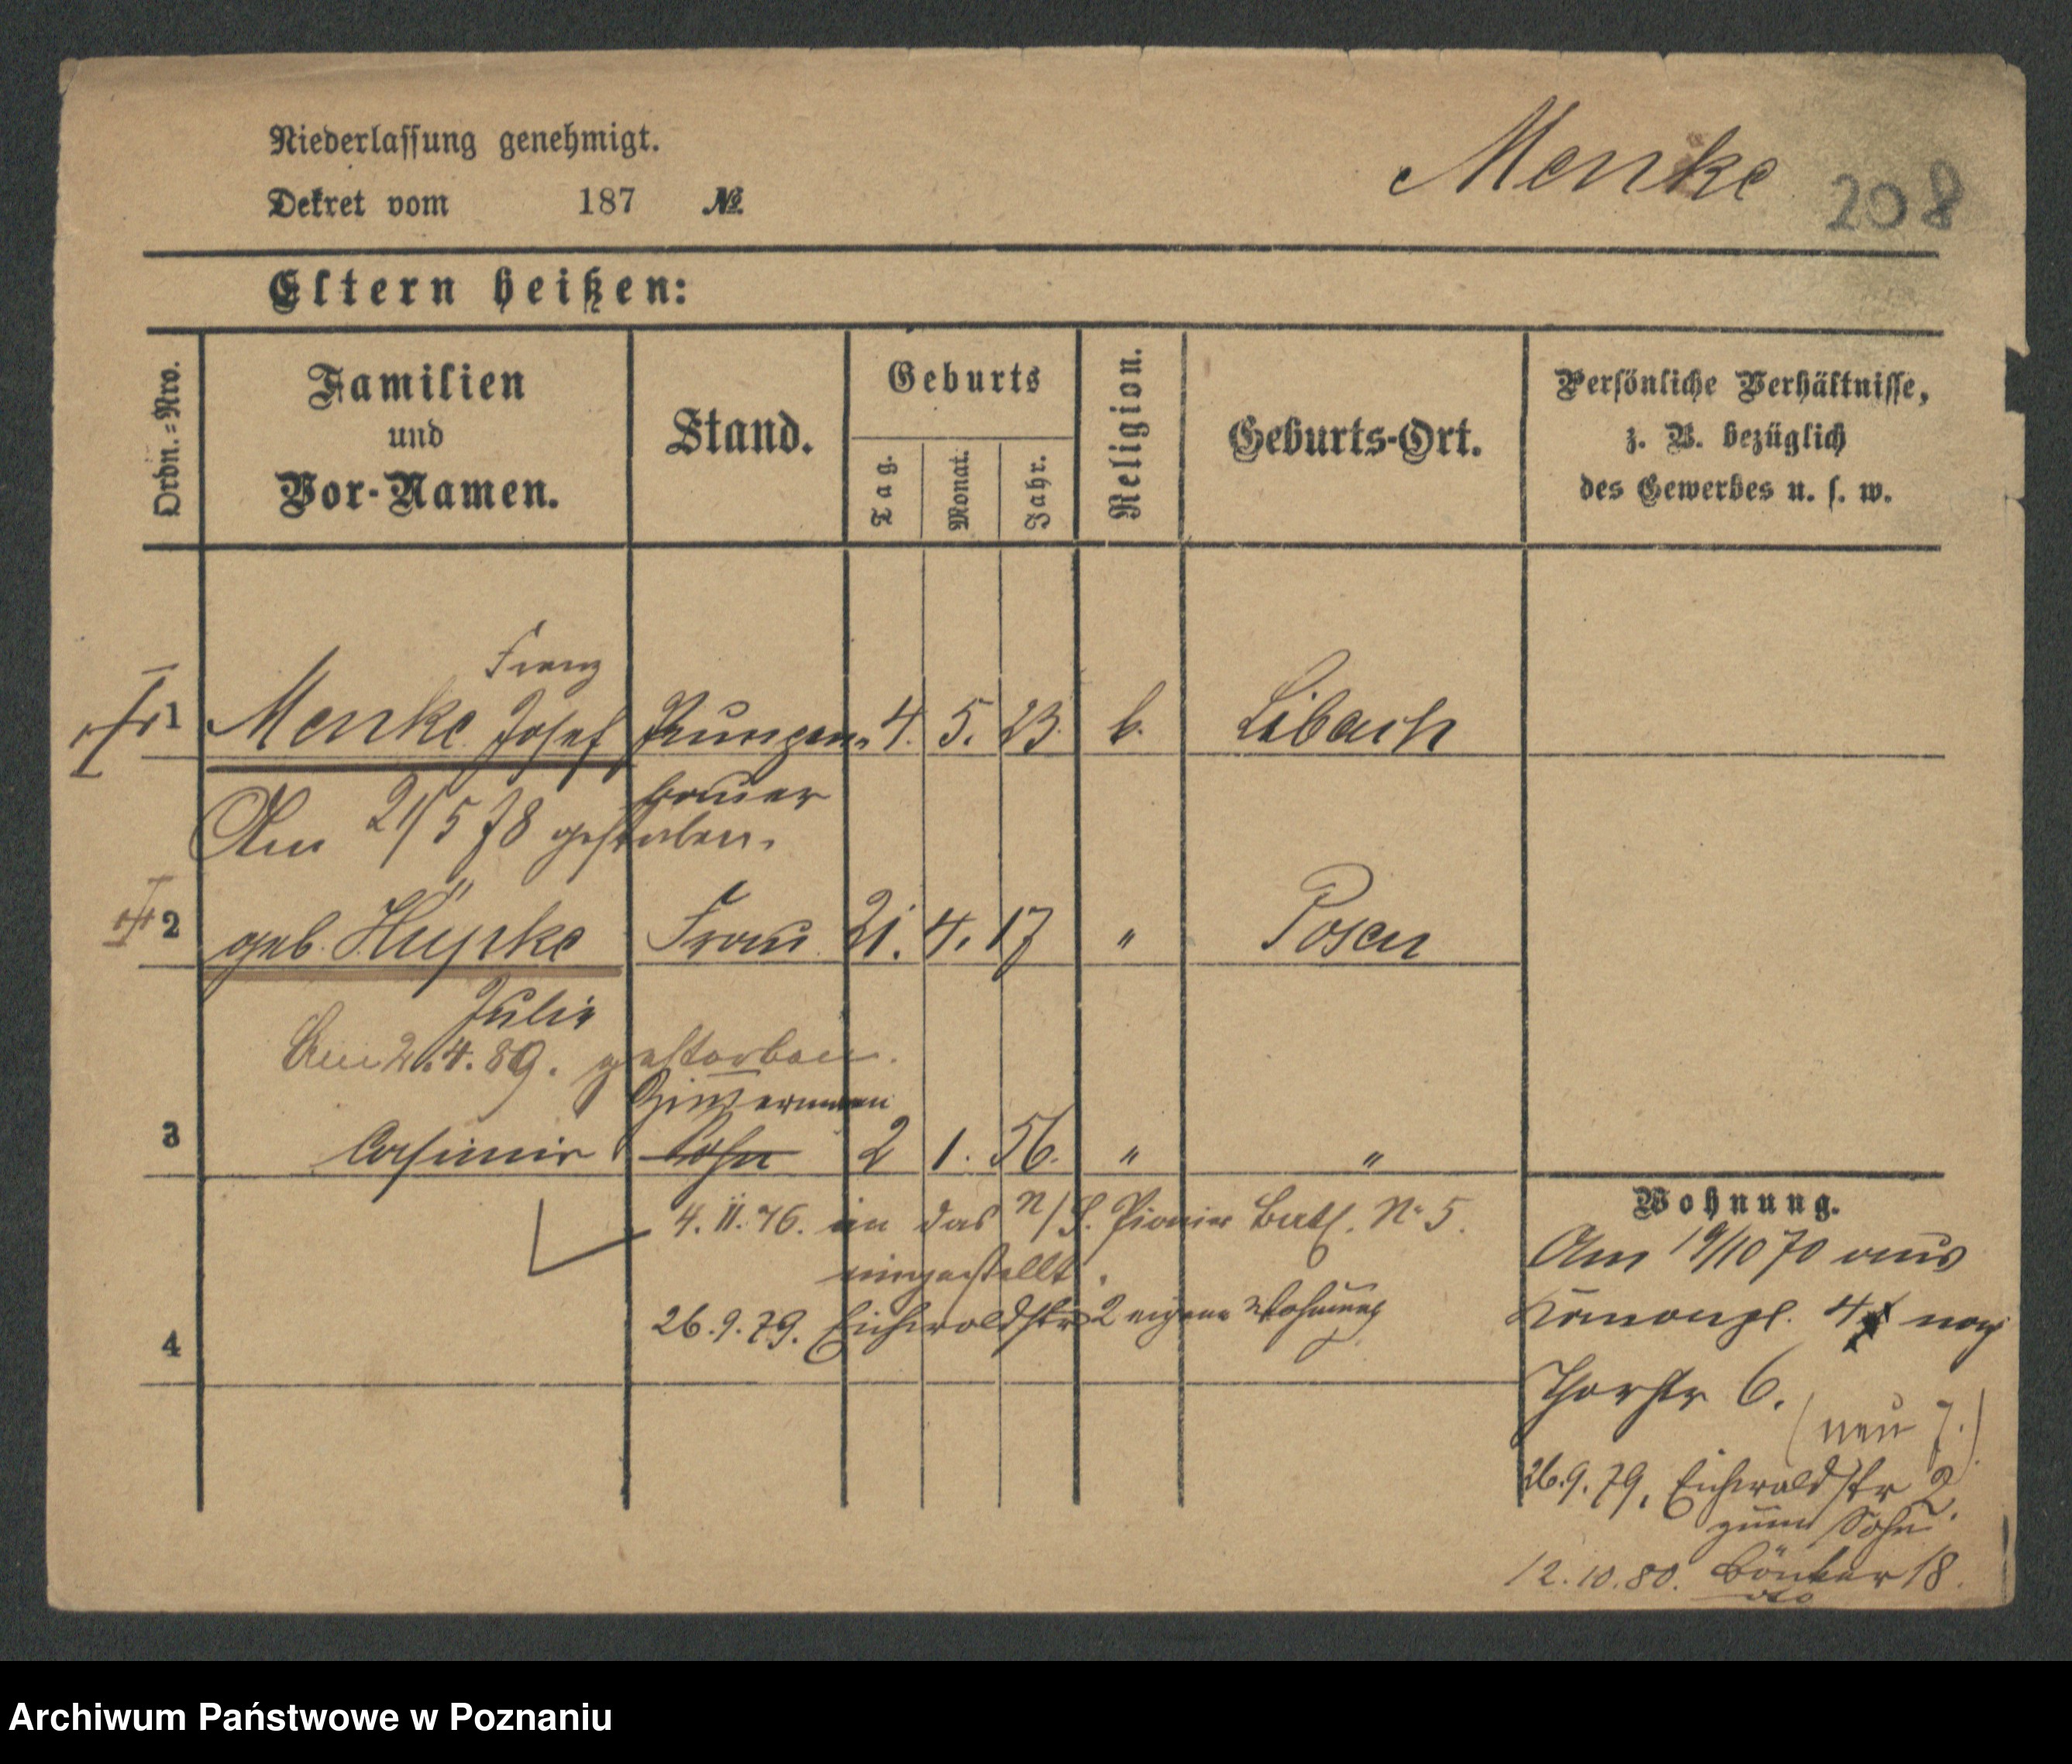 Niederlassung genehmigt.
Dekret vom 187 №
Menke 208
Eltern heißen:
Ordn.=Nro.
Familien
und
Vor-Namen.
Stand.
Geburts
Tag.
Monat.
Jahr.
Religion.
Geburts-Ort.
Persönliche Verhältnisse,
z. B. bezüglich
des Gewerbes u. s. w.
Franz
1 Menke Josef 4. 5. 23. k. Libach
bauer
Am 21/5 78 gestorben.
2 geb. Hüpke Frau 21. 4. 17 " Posen
Julie
Am 2.4.89. gestorben.
Zimmermann
3 Casimir Sohn 2 1. 56. " "
4. 11. 76. in das n/S. Pionier Batl. No 5.
eingestellt.
26.9.79. Eichwaldstr 2 eigene Wohnung
4
Wohnung.
Am 19/10 70 aus
4 nach
Thorstr 6.
(neu 7.)
26.9.79. Eichwaldstr 2.
zum Sohn.
12.10.80. 18.
Archiwum Państwowe w Poznaniu